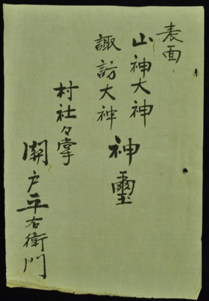 表面
山神大神
諏訪大神
神璽
村社々掌
關戸平右衛門